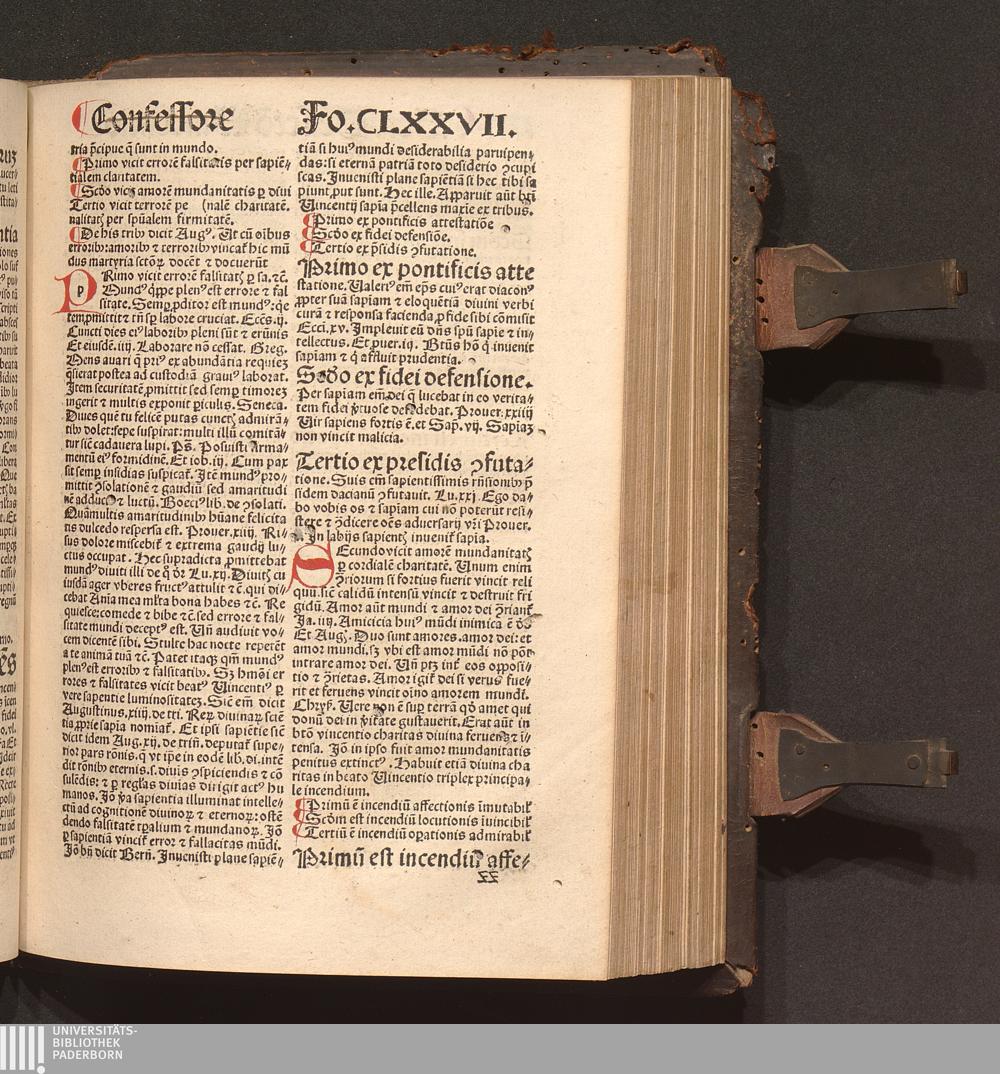 Confessore
Fo. CLXXVII.
tria p̄cipue q̄ sunt in mundo.
Primo vicit errorē falsitatis per sapiē⸗
tialem claritatem.
Scd̄o vicit amorē mundanitatis ꝑ diui
Tertio vicit terrorē pe (nalē charitatē.
nalitatꝭ per spūalem firmitatē.
De his tribꝰ dicit Augꝰ. Ut cū oībus
erroribꝰ: amoribꝰ ⁊ terroribꝰ vincat᷑ hic mū
dus martyria sctōꝝ docēt ⁊ docuerūt
PRimo vicit errorē falsitatꝭ ꝑ sa. ⁊c̄.
Mundꝰ q̄ppe plenꝰ est errore ⁊ fal
sitate. Semꝑ ꝓditor est mundꝰ: qē
tem ꝓmittit ⁊ tn̄ sꝑ labore cruciat. Eccēs. ij.
Cuncti dies eiꝰ laboribꝰ pleni sūt ⁊ erūnis
Et eiusdē. iiij. Laborare nō cessat. Greg.
Mens auari q̄ priꝰ ex abundātia requiez
q̄sierat postea ad custodiā grauiꝰ laborat.
Item securitatē ꝓmittit sed semꝑ timorez
ingerit ⁊ multis exponit ꝑiculis. Seneca.
Diues quē tu felicē putas cunctꝭ admirā⸗
tibꝰ dolet: sepe suspirat: multi illū comitā⸗
tur sic̄ cadauera lupi. Ps̄. Posuisti firma⸗
mentū eiꝰ formidinē. Et iob. iij. Cum pax
sit semꝑ insidias suspicat᷑. Itē mundꝰ pro⸗
mittit ꝯsolationē ⁊ gaudiū sed amaritudi
nē adducit ⁊ luctū. Boeciꝰ lib. de ꝯsolati.
Quāmultis amaritudinibꝰ hūane felicita
tis dulcedo respersa est. Prouer. xiiij. Ri⸗
sus dolore miscebit᷑ ⁊ extrema gaudij lu⸗
ctus occupat. Hec supradicta ꝓmittebat
mundꝰ diuiti illi de q̊ dr̄ Lu. xij. Diuitꝭ cu
iusdā ager vberes fructꝰ attulit ⁊c̄. qui di⸗
cebat Anīa mea ml̄ta bona habes ⁊c̄. Re
quiesce: comede ⁊ bibe ⁊c̄. sed errore ⁊ fal⸗
sitate mundi deceptꝰ est. Un̄ audiuit vo⸗
cem dicentē sibi. Stulte hac nocte repetēt
a te animā tuā ⁊c̄. Patet itaqꝫ qm̄ mundꝰ
plenꝰ est erroribꝰ ⁊ falsitatibꝰ. Sꝫ hmōi er
rores ⁊ falsitates vicit beatꝰ Uincentiꝰ ꝑ
vere sapientie luminositatez. Sic̄ em̄ dicit
Augustinus. xiiij. de tri. Reꝝ diuinaꝝ sciē
tia ꝓprie sapīa nomīat᷑. Et ipsi sapiētie sic̄
dicit idem Aug. xij. de trin̄. deputat᷑ supe⸗
rior pars rōnis. q̄ vt ip̄e in eodē lib. di. intē
dit rōnibꝰ eternis. s. diuīs ꝯspiciendis ⁊ cō
sulēdis: ⁊ ꝑ reglas diuīas dirigit actꝰ hu
manos. Iō ꝟa sapientia illuminat intelle⸗
ctū ad cognitionē diuinoꝝ ⁊ eternoꝝ: ostē
dendo falsitatē tꝑalium ⁊ mundanoꝝ. Iō
ꝑ sapientiā vincit᷑ error ⁊ fallacitas mūdi.
Iō bn̄ dicit Bern̄. Inuenisti plane sapiē⸗
tiā si huiꝰ mundi desiderabilia paruipen⸗
das: si eternā patriā toto desiderio ꝯcupi
scas. Inuenisti plane sapiētiā si hec tibi sa
piunt put sunt. Hec ille. Apparuit aūt bt̄i
Uincentij sapīa p̄cellens maxīe ex tribus.
Primo ex pontificis attestatiōe
Scd̄o ex fidei defensiōe.
Tertio ex p̄sidis ꝯfutatione.
Primo ex pontificis atte
statione. Ualeriꝰ em̄ ep̄s cuiꝰ erat diaconꝰ
ꝓpter suā sapiam ⁊ eloquētiā diuini verbi
curā ⁊ responsa facienda ꝓ fide sibi cōmisit
Ecci. xv. Impleuit eū dn̄s spū sapīe ⁊ in⸗
tellectus. Et ꝓuer. iij. Btūs hō q̄ inuenit
sapiam ⁊ q̄ affluit prudentia.
Scd̄o ex fidei defensione.
Per sapiam em̄ dei q̄ lucebat in eo verita⸗
tem fidei ꝟtuose defēdebat. Prouer. xxiiij
Uir sapiens fortis ē. et Sap. vij. Sapiaꝫ
non vincit malicia.
Tertio ex presidis ꝯfuta⸗
tione. Suis em̄ sapientissimis rn̄sionibꝰ p̄
sidem dacianū ꝯfutauit. Lu. xxj. Ego da⸗
bo vobis os ⁊ sapiam cui nō poterūt resi⸗
stere ⁊ ꝯ̄dicere oēs aduersarij vr̄i Prouer.
x. In labijs sapientꝭ inuenit᷑ sapia.
SEcundo vicit amorē mundanitatꝭ
ꝑ cordialē charitatē. Unum enim
ꝯ̄riorum si fortius fuerit vincit reli
quū. sic̄ calidū intensū vincit ⁊ destruit fri
gidū. Amor aūt mundi ⁊ amor dei ꝯ̄riant᷑
Ja. iiij. Amicicia huiꝰ mūdi inimica ē dō
Et Augꝭ. Duo sunt amores. amor dei: et
amor mundi. sꝫ vbi est amor mūdi nō pōt
intrare amor dei. Un̄ ptꝫ int᷑ eos opposi⸗
tio ⁊ ꝯ̄rietas. Amor igit᷑ dei si verus fue⸗
rit et feruens vincit oīno amorem mundi.
Chryß. Uere nō ē suꝑ terrā qd̄ amet qui
donū dei in ꝟitate gustauerit. Erat aūt in
btō vincentio charitas diuina feruens ⁊ ī⸗
tensa. Iō in ipso fuit amor mundanitatis
penitus extinctꝰ. Habuit etiā diuina cha
ritas in beato Uincentio triplex principa⸗
le incendium.
Primū ē incendiū affectionis īmutabil᷑
Scd̄m est incendiū locutionis īuincibil᷑
Tertiū ē incendiū oꝑationis admirabil᷑
Primū est incendiū affe⸗
zz
UNIVERSITÄTS-
BIBLIOTHEK
PADERBORN